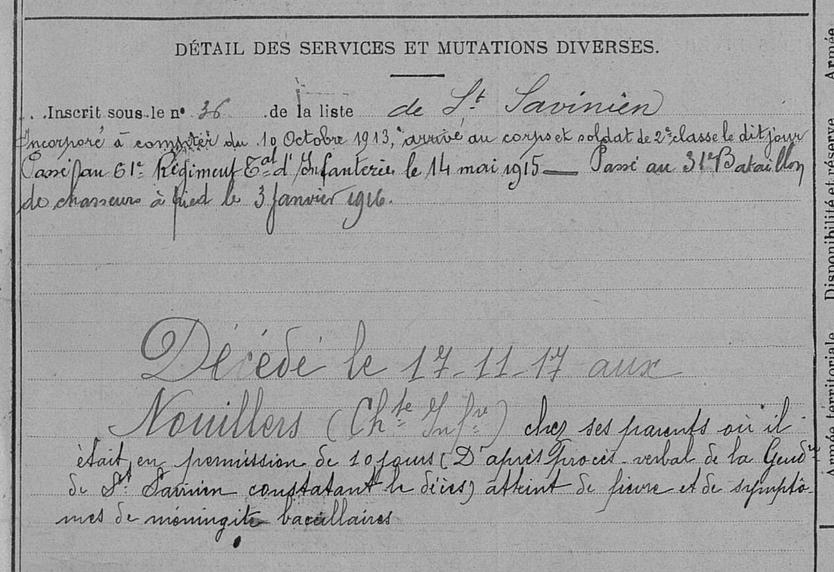 DÉTAIL DES SERVICES ET MUTATIONS DIVERSES.
Inscrit sous le nº 36 de la liste de St Savinien
Incorporé à compter du 10 Octobre 1913, arrivé au corps et soldat de 2e classe le dit jour
Passé au 61e Régiment Tal d'Infanterie le 14 mai 1915 — Passé au 31e Bataillon
de chasseurs à pied le 3 Janvier 1916.
Décédé le 17-11-17 aux
Nouillers (Chte Infre) chez ses parents où il
était en permission de 10 jours (D'après Procès-verbal de la Gendie
de St Savinien constatant le décès) atteint de fièvre et de symptô-
mes de méningite bacillaires
Armée
Disponibilité et réserve
Armée territoriale